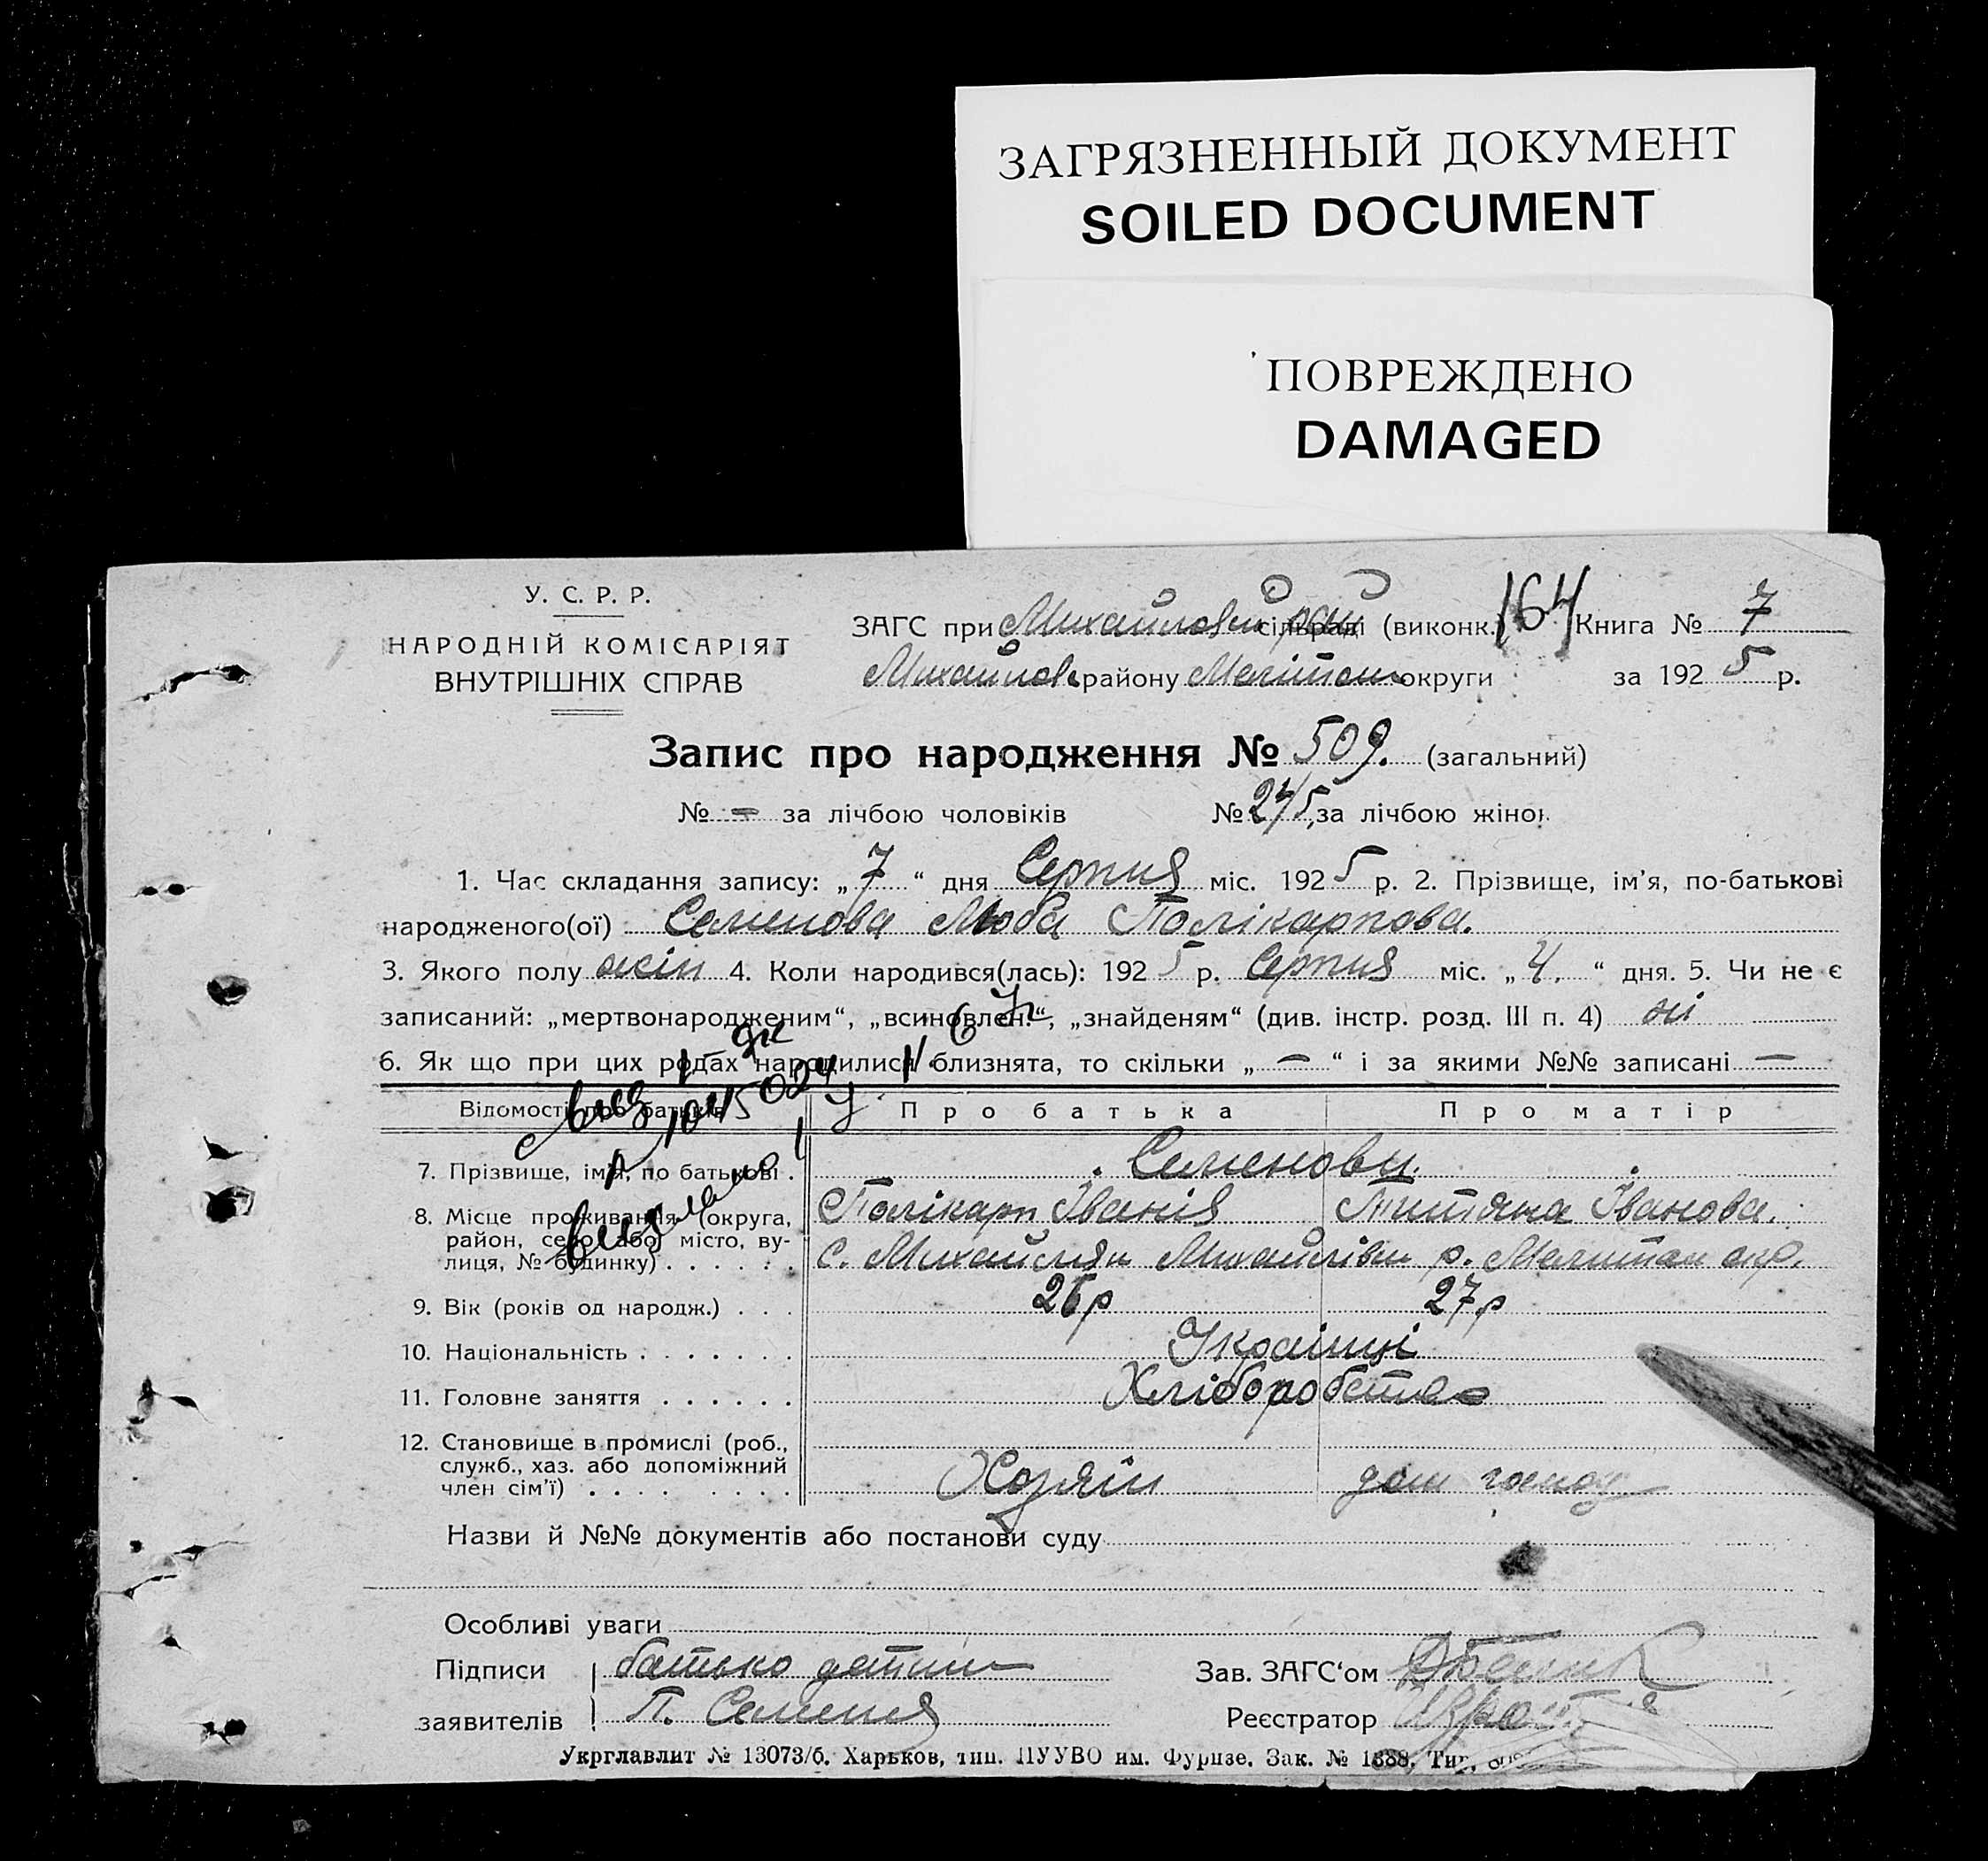 ЗАГРЯЗНЕННЫЙ ДОКУМЕНТ
SOILED DOCUMENT
ПОВРЕЖДЕНО
DAMAGED
У. С. Р. Р.
НАРОДНІЙ КОМІСАРІЯТ
ВНУТРІШНІХ СПРАВ
ЗАГС при сільраді (виконк.) 164 Книга № 7
району округи за 1925 р.
Запис про народження № 509. (загальний)
№ — за лічбою чоловіків № 245 за лічбою жінок
1. Час складання запису: „7“ дня Серпня міс. 1925 р. 2. Прізвище, ім’я, по-батькові
народженого(ої) Семенова Люба Полікарпова.
3. Якого полу жін 4. Коли народився(лась): 1925 р. Серпня міс. „4.“ дня. 5. Чи не є
записаний: „мертвонародженим“, „всиновлен.“, „знайденям“ (див. інстр. розд. III п. 4) ні
6. Як що при цих родах народилися близнята, то скільки „—“ і за якими №№ записані —
Відомості про батьків Про батька Про матір
7. Прізвище, ім’я, по батькові . Семенови.
8. Місце проживання (округа, Полікарп Іванів Титяна Іванова.
район, село, або місто, вулиця, № будинку) . . . . . . с. р.
9. Вік (років од народж.) . . . 26р 27р
10. Національність . . . . . . . Українці
11. Головне заняття . . . . . . Хлібороб
12. Становище в промислі (роб.,
служб., хаз. або допоміжний
член сім’ї) . . . . . . . . Хозяін дом
Назви й №№ документів або постанови суду
Особливі уваги
Підписи батько дитини Зав. ЗАГС‘ом
заявителів П. Реєстратор
Укрглавлит № 13073/б. Харьков, тип. ПУУВО им. Фурнзе. Зак. № 1388.